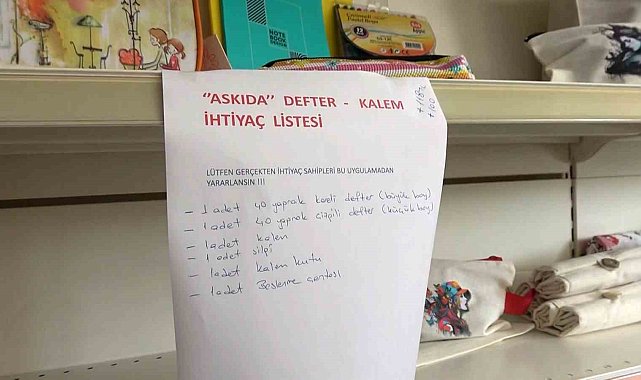 NOTE BOOK
''ASKIDA'' DEFTER - KALEM
İHTİYAÇ LİSTESİ
LÜTFEN GERÇEKTEN İHTİYAÇ SAHİPLERİ BU UYGULAMADAN
YARARLANSIN !!!
- 1 adet 40 yaprak kareli defter (büyük boy)
- 1 adet 40 yaprak çizgili defter (küçük boy)
- 1 adet kalem
- 1 adet silgi
- 1 adet kalem kutu
- 1 adet Beslenme çantası